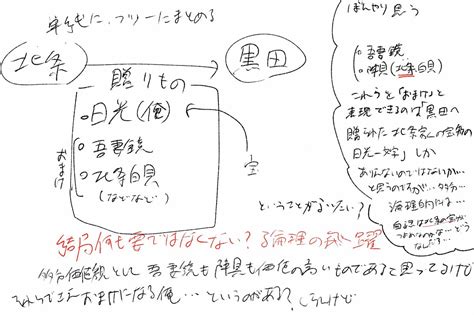 単純に、フツーにまとめる
北条
黒田
贈りもの
日光(俺)
吾妻鏡
北条白貝
(などなど)
おまけ
宝
ぼんやり思う
吾妻鏡
(北条白貝)
これらを「おまけ」と
表現できるのは「黒田へ
贈られた北条家の宝物の
日光一文字」しか
ありえないのではないか…
と思うのですが…
論理的には…
ということがいいたい?
結局何も要ではなくない?論理の飛躍
多分価値観として吾妻鏡も陣貝も価値の高いものであると思ってるけど
それらでさえおまけになる俺…というのがある?しらんけど